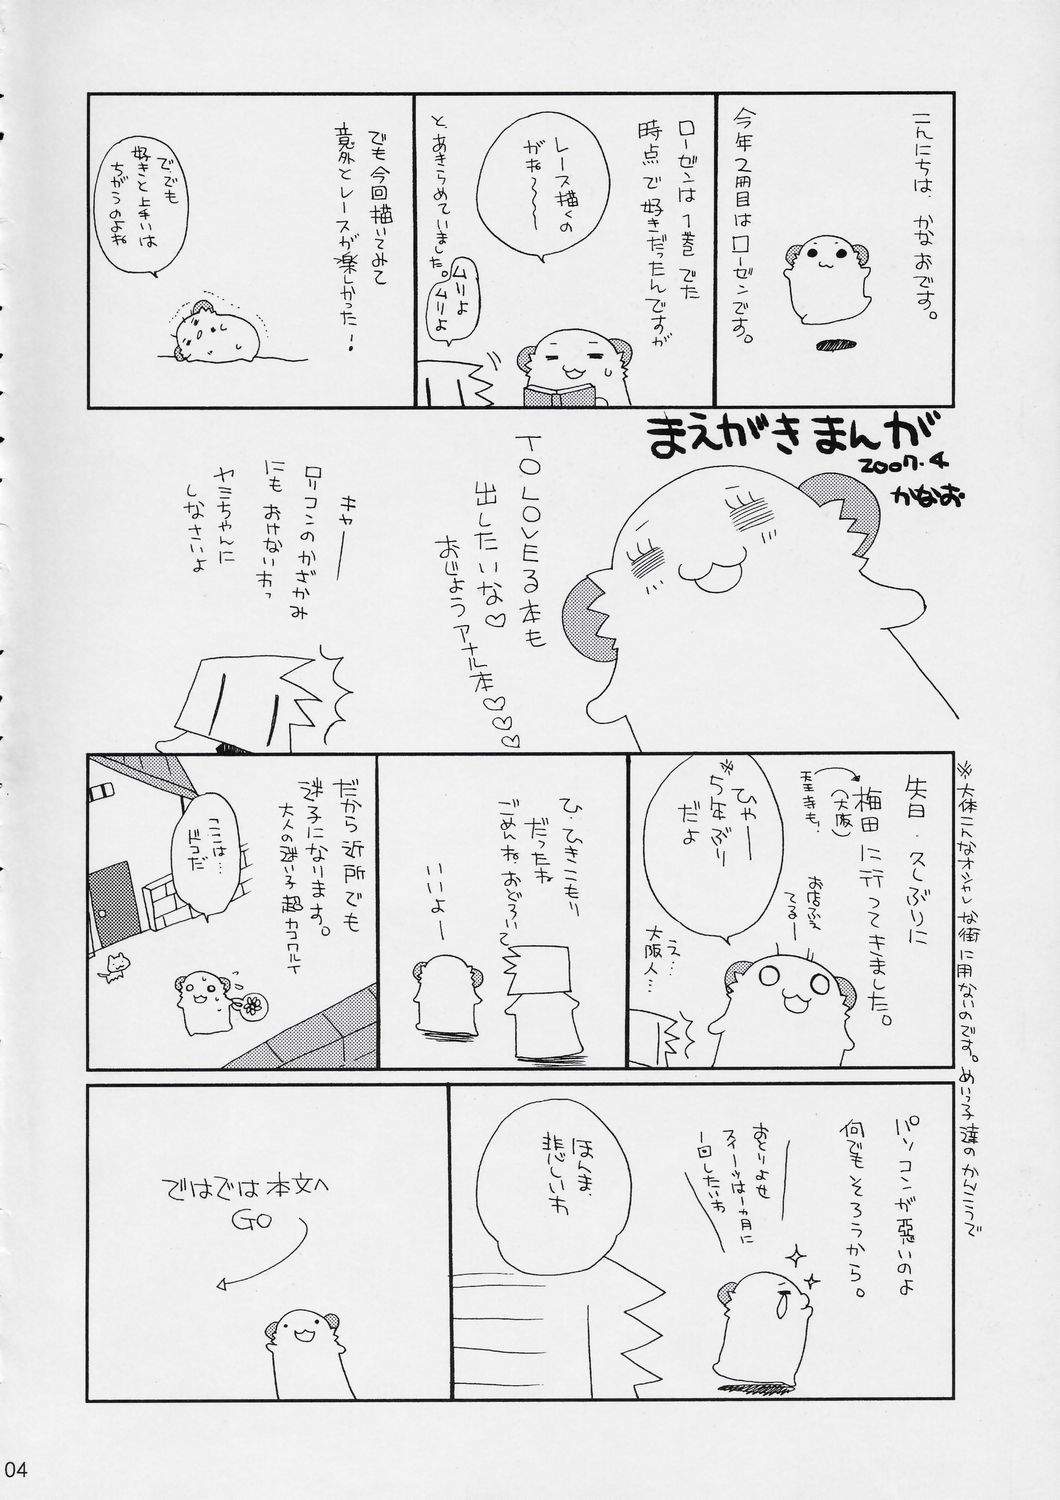 まえがきまんが
2007.4
かなお
こんにちは、かなおです。
今年2冊目はローゼンです。
ローゼンは1巻でた
時点で好きだったんですが
レース描くの
がね〜〜〜
と、あきらめていました。
ムリよ
ムリよ
でも今回描いてみて
意外とレースが楽しかった!
で、でも
好きと上手いは
ちがうのよね
TO LOVEる本も
出したいな♡
おじょうアナル本♡♡♡
キャーー
ロリコンのかざかみ
にもおけないわっ
ヤミちゃんに
しなさいよ
※大体こんなオシャレな街に用ないのです。めいっ子達のかんこうで
先日、久しぶりに
梅田に行ってきました。
(大阪)
お店ふえ
てるー
ひゃーー
※5年ぶり
だよ
え…
大阪人…
ひ、ひきこもり
だったね
ごめんね おどろいて
いいよー
だから近所でも
迷子になります。
大人の迷い子 超カコワルイ
ここは…
ドコだ
パソコンが悪いのよ
何でもそろうから。
おとりよせ
スイーツは1ヵ月に
一回したいわ
ほんま、
悲しいわ
ではでは本文へ
GO
04